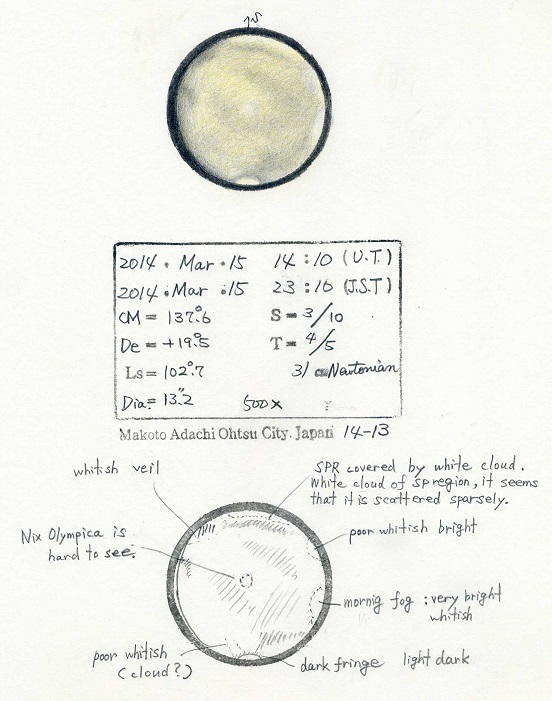 S
2014. Mar. 15 14:10 (U.T.)
2014. Mar. 15 23:10 (J.S.T)
CM = 137°.6 S = 3/10
De = +19°.5 T = 4/5
Ls = 102°.7 31 cm Newtonian
Dia. = 13".2 500×
Makoto Adachi Ohtsu City. Japan 14-13
whitish veil
SPR covered by white cloud.
White cloud of sp region, it seems
that it is scattered sparsely.
Nix Olympica is
hard to see.
poor whitish bright
mornig fog : very bright
whitish
poor whitish
(cloud?)
dark fringe light dark